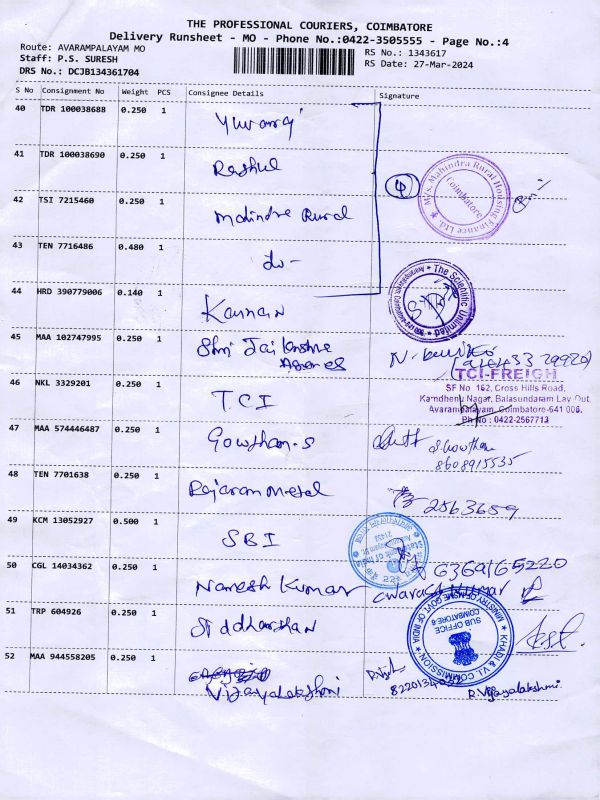 THE PROFESSIONAL COURIERS, COIMBATORE
Delivery Runsheet - MO - Phone No.:0422-3505555 - Page No.:4
Route: AVARAMPALAYAM MO
RS No.: 1343617
Staff: P.S. SURESH
RS Date: 27-Mar-2024
DRS No.: DCJB134361704
S No Consignment No Weight PCS Consignee Details Signature
40 TDR 100038688 0.250 1
41 TDR 100038690 0.250 1
4
M/s. Mahindra Rural Housing Finance Ltd.
Coimbatore
42 TSI 7215460 0.250 1 Mahindra Rural
43 TEN 7716486 0.480 1 do -
The Scientific Unlimited
44 HRD 390779006 0.140 1 Kannan
45 MAA 102747995 0.250 1 Shri Jai
46 NKL 3329201 0.250 1 TCI
TCI-FREIGH
SF No. 162, Cross Hills Road,
Kamdhenu Nagar, Balasundaram Lay Out,
Avarampalayam, Coimbatore-641 006.
Ph No : 0422-2567713
47 TEN 574446487 0.250 1 Gowtham.S
S.Gowtham
8608915535
48 TEN 7701638 0.250 1 Rajaram Metal 2563659
49 KCM 13052927 0.500 1 SBI
State Bank of India
50 CGL 14034362 0.250 1 Naresh Kumar 6369165220
51 TRP 604926 0.250 1 Siddharthan
KHADI & V.I. COMMISSION
MINISTRY OF MSME GOVT OF INDIA
SUB OFFICE
COIMBATORE-6
52 MAA 944558205 0.250 1 Vijayalakshmi
R.Vijayalakshmi